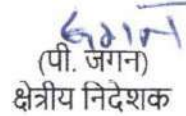 (पी. जगन)
क्षेत्रीय निदेशक